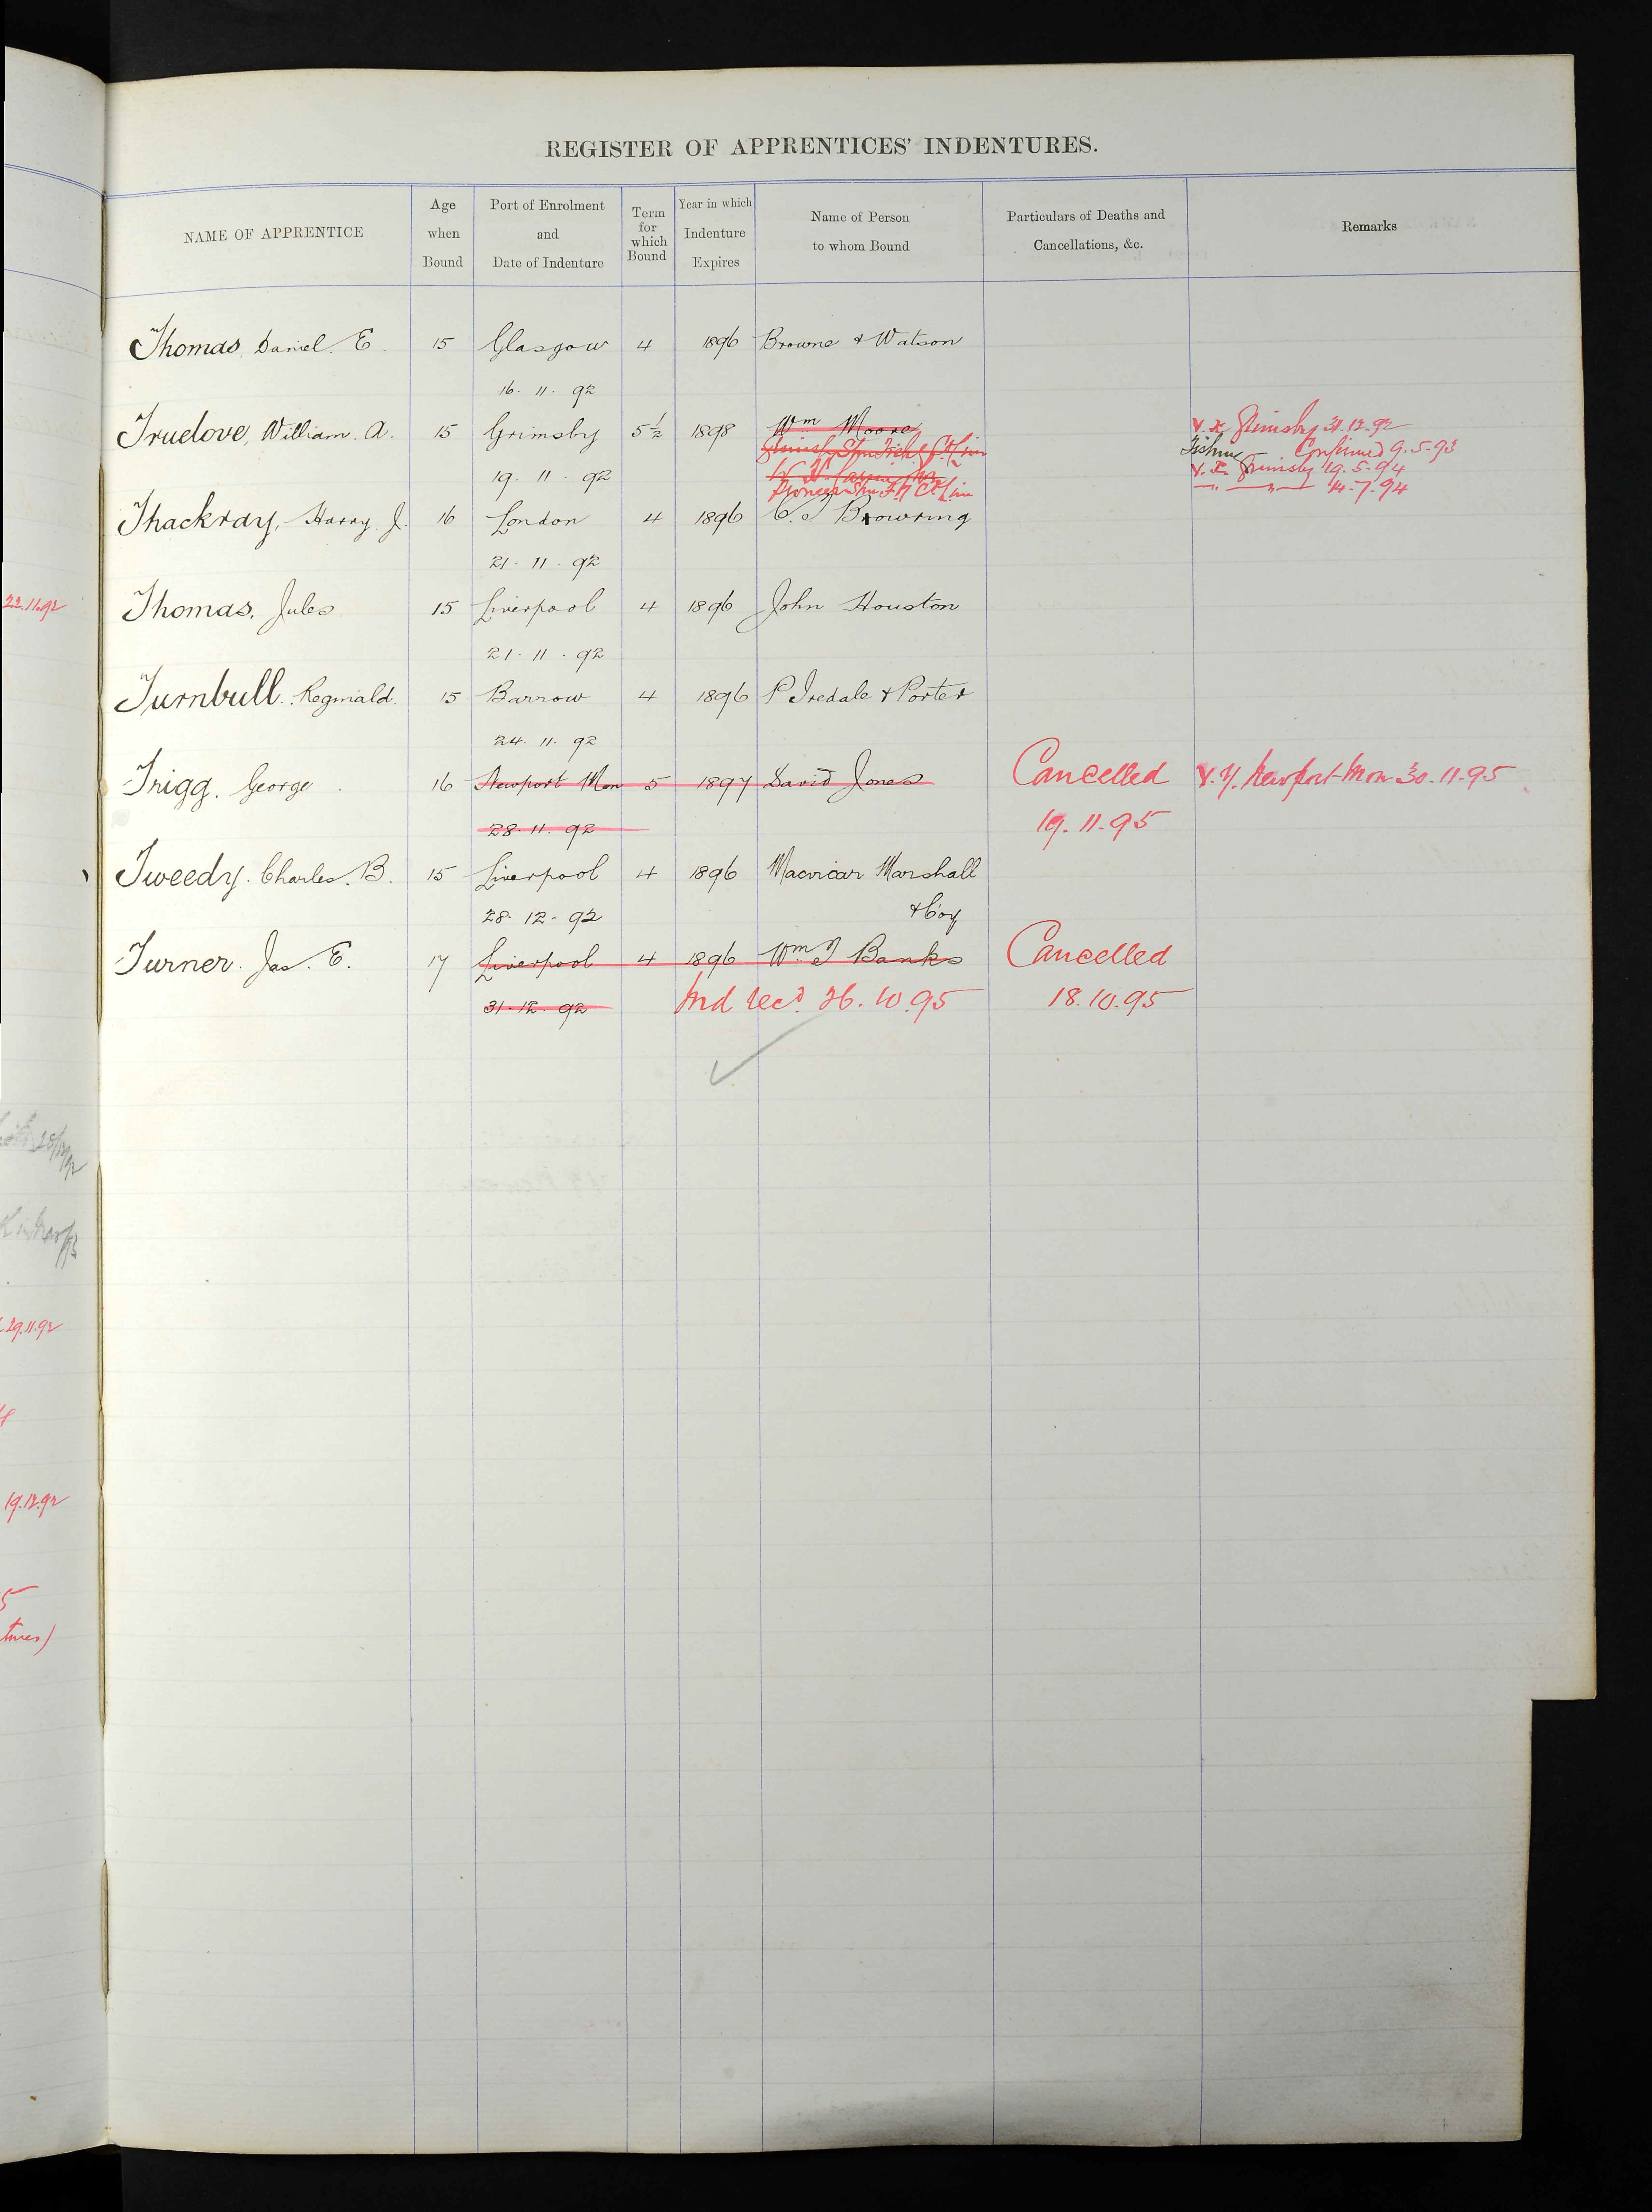 REGISTER OF APPRENTICES' INDENTURES.
NAME OF APPRENTICE
Age when Bound
Port of Enrolment and Date of Indenture
Term for which Bound
Year in which Indenture Expires
Name of Person to whom Bound
Particulars of Deaths and Cancellations, &c.
Remarks
Thomas, Daniel. E. 15 Glasgow 4 1896 Browne & Watson
16. 11. 92
Truelove, William. A. 15 Grimsby 5½ 1898 Wm Moore Grimsby 31.12.92
Confirmed 9.5.93
19. 11. 92 Grimsby 19.5.94
Pioneer 4.7.94
Thackray, Harry. J. 16 London 4 1896 C. T Bowring
21. 11. 92
22.11.92
Thomas, Jules 15 Liverpool 4 1896 John Houston
21. 11. 92
Turnbull. Reginald. 15 Barrow 4 1896 P Iredale & Porter
24. 11. 92
Trigg. George 16 Newport Mon 5 1897 David Jones Cancelled Newport Mon 30.11.95
28. 11. 92 19.11.95
Tweedy. Charles. B. 15 Liverpool 4 1896 Macvicar Marshall
28. 12. 92 & Coy
Turner. Jas. E. 17 Liverpool 4 1896 Wm T Banks Cancelled
31. 12. 92 Ind recd 26.10.95 18.10.95
29.11.92
19.12.92